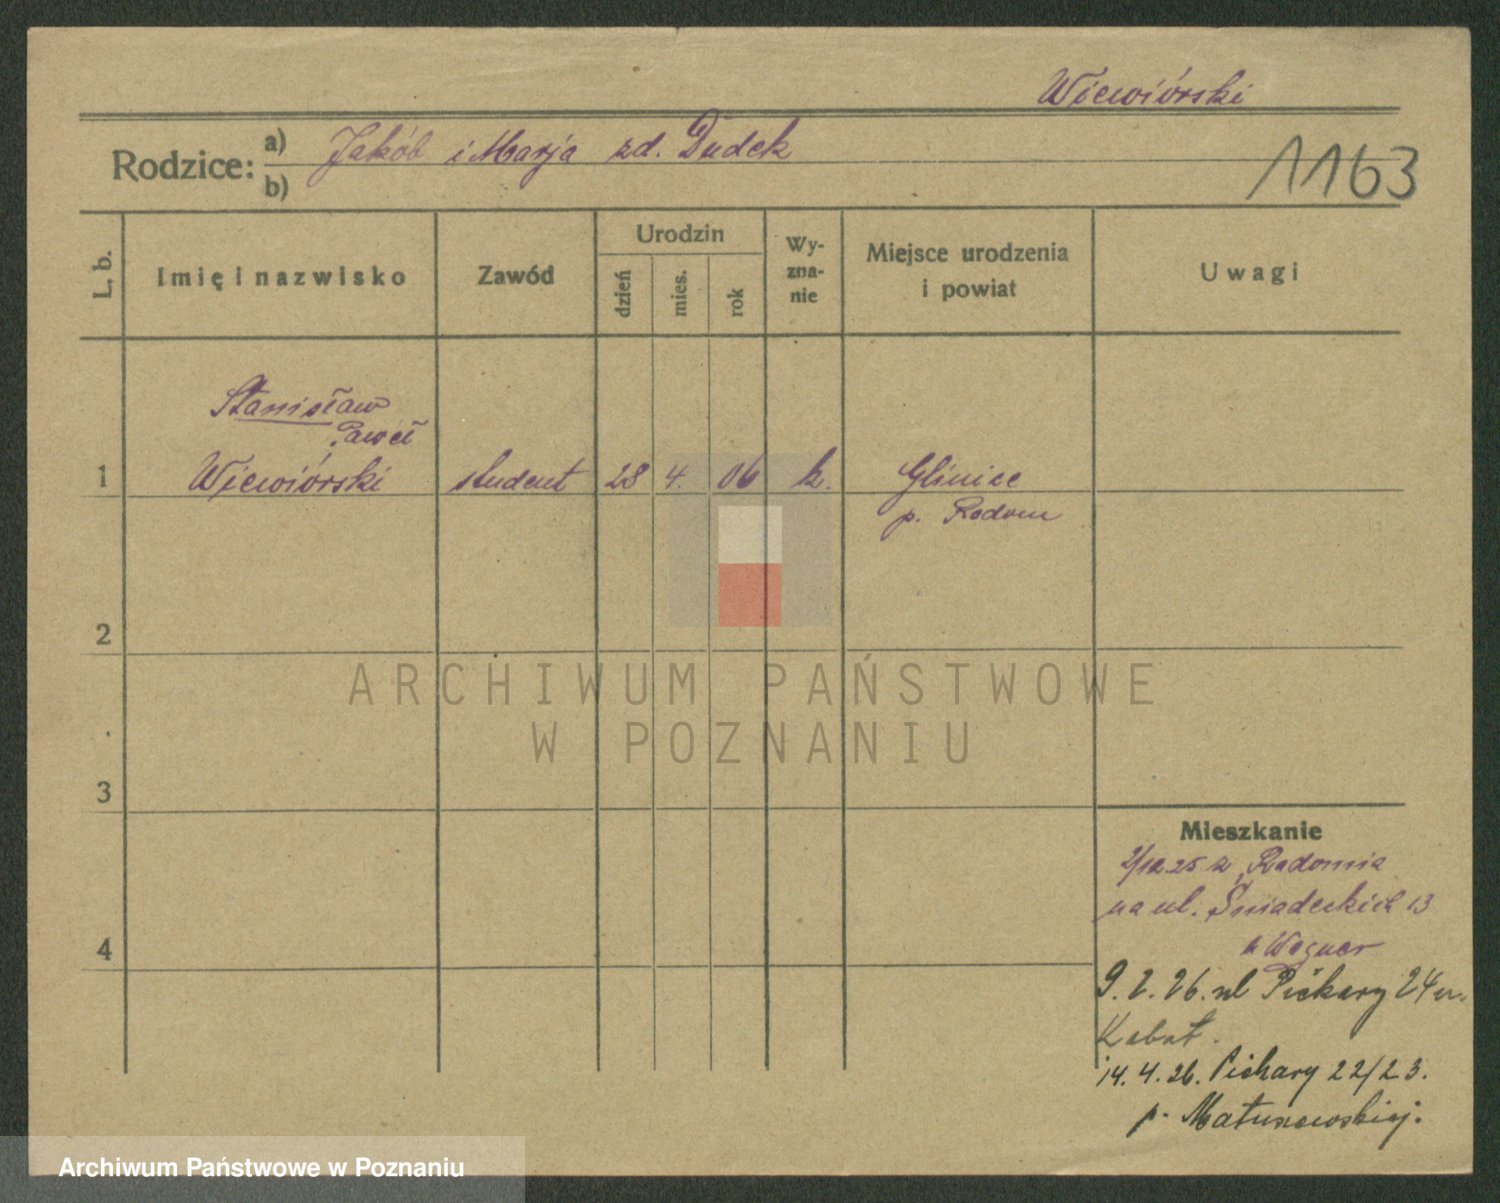 Wiewiórski
Rodzice: a) Jakób i Marja zd. Dudek
b)
1163
L. b.
Imię i nazwisko
Zawód
Urodzin
dzień
mies.
rok
Wy-
zna-
nie
Miejsce urodzenia
i powiat
Uwagi
Stanisław
Paweł
1 Wiewiórski student 28 4. 06 k. Glinice
p. Radom
2
3
4
Mieszkanie
2/12.25 z Radomia
na ul. Śniadeckich 13
u Wegner
9. 2. 26. ul Piekary 24
Kabat.
14. 4. 26. Piekary 22/23.
p. Matuszewskiej.
ARCHIWUM PAŃSTWOWE
W POZNANIU
Archiwum Państwowe w Poznaniu